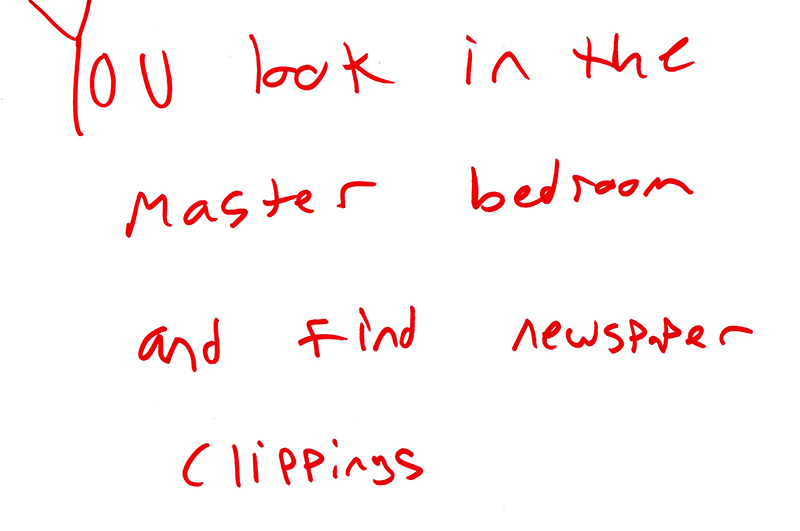 You look in the
Master bedroom
and find newspaper
clippings